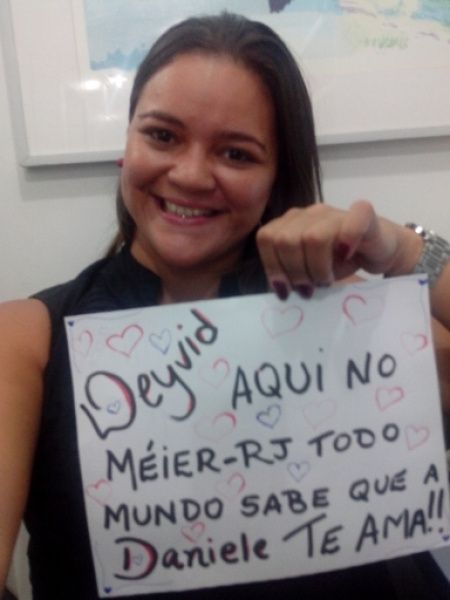 Deyvid AQUI NO
MÉIER-RJ TODO
MUNDO SABE QUE A
Daniele TE AMA!!